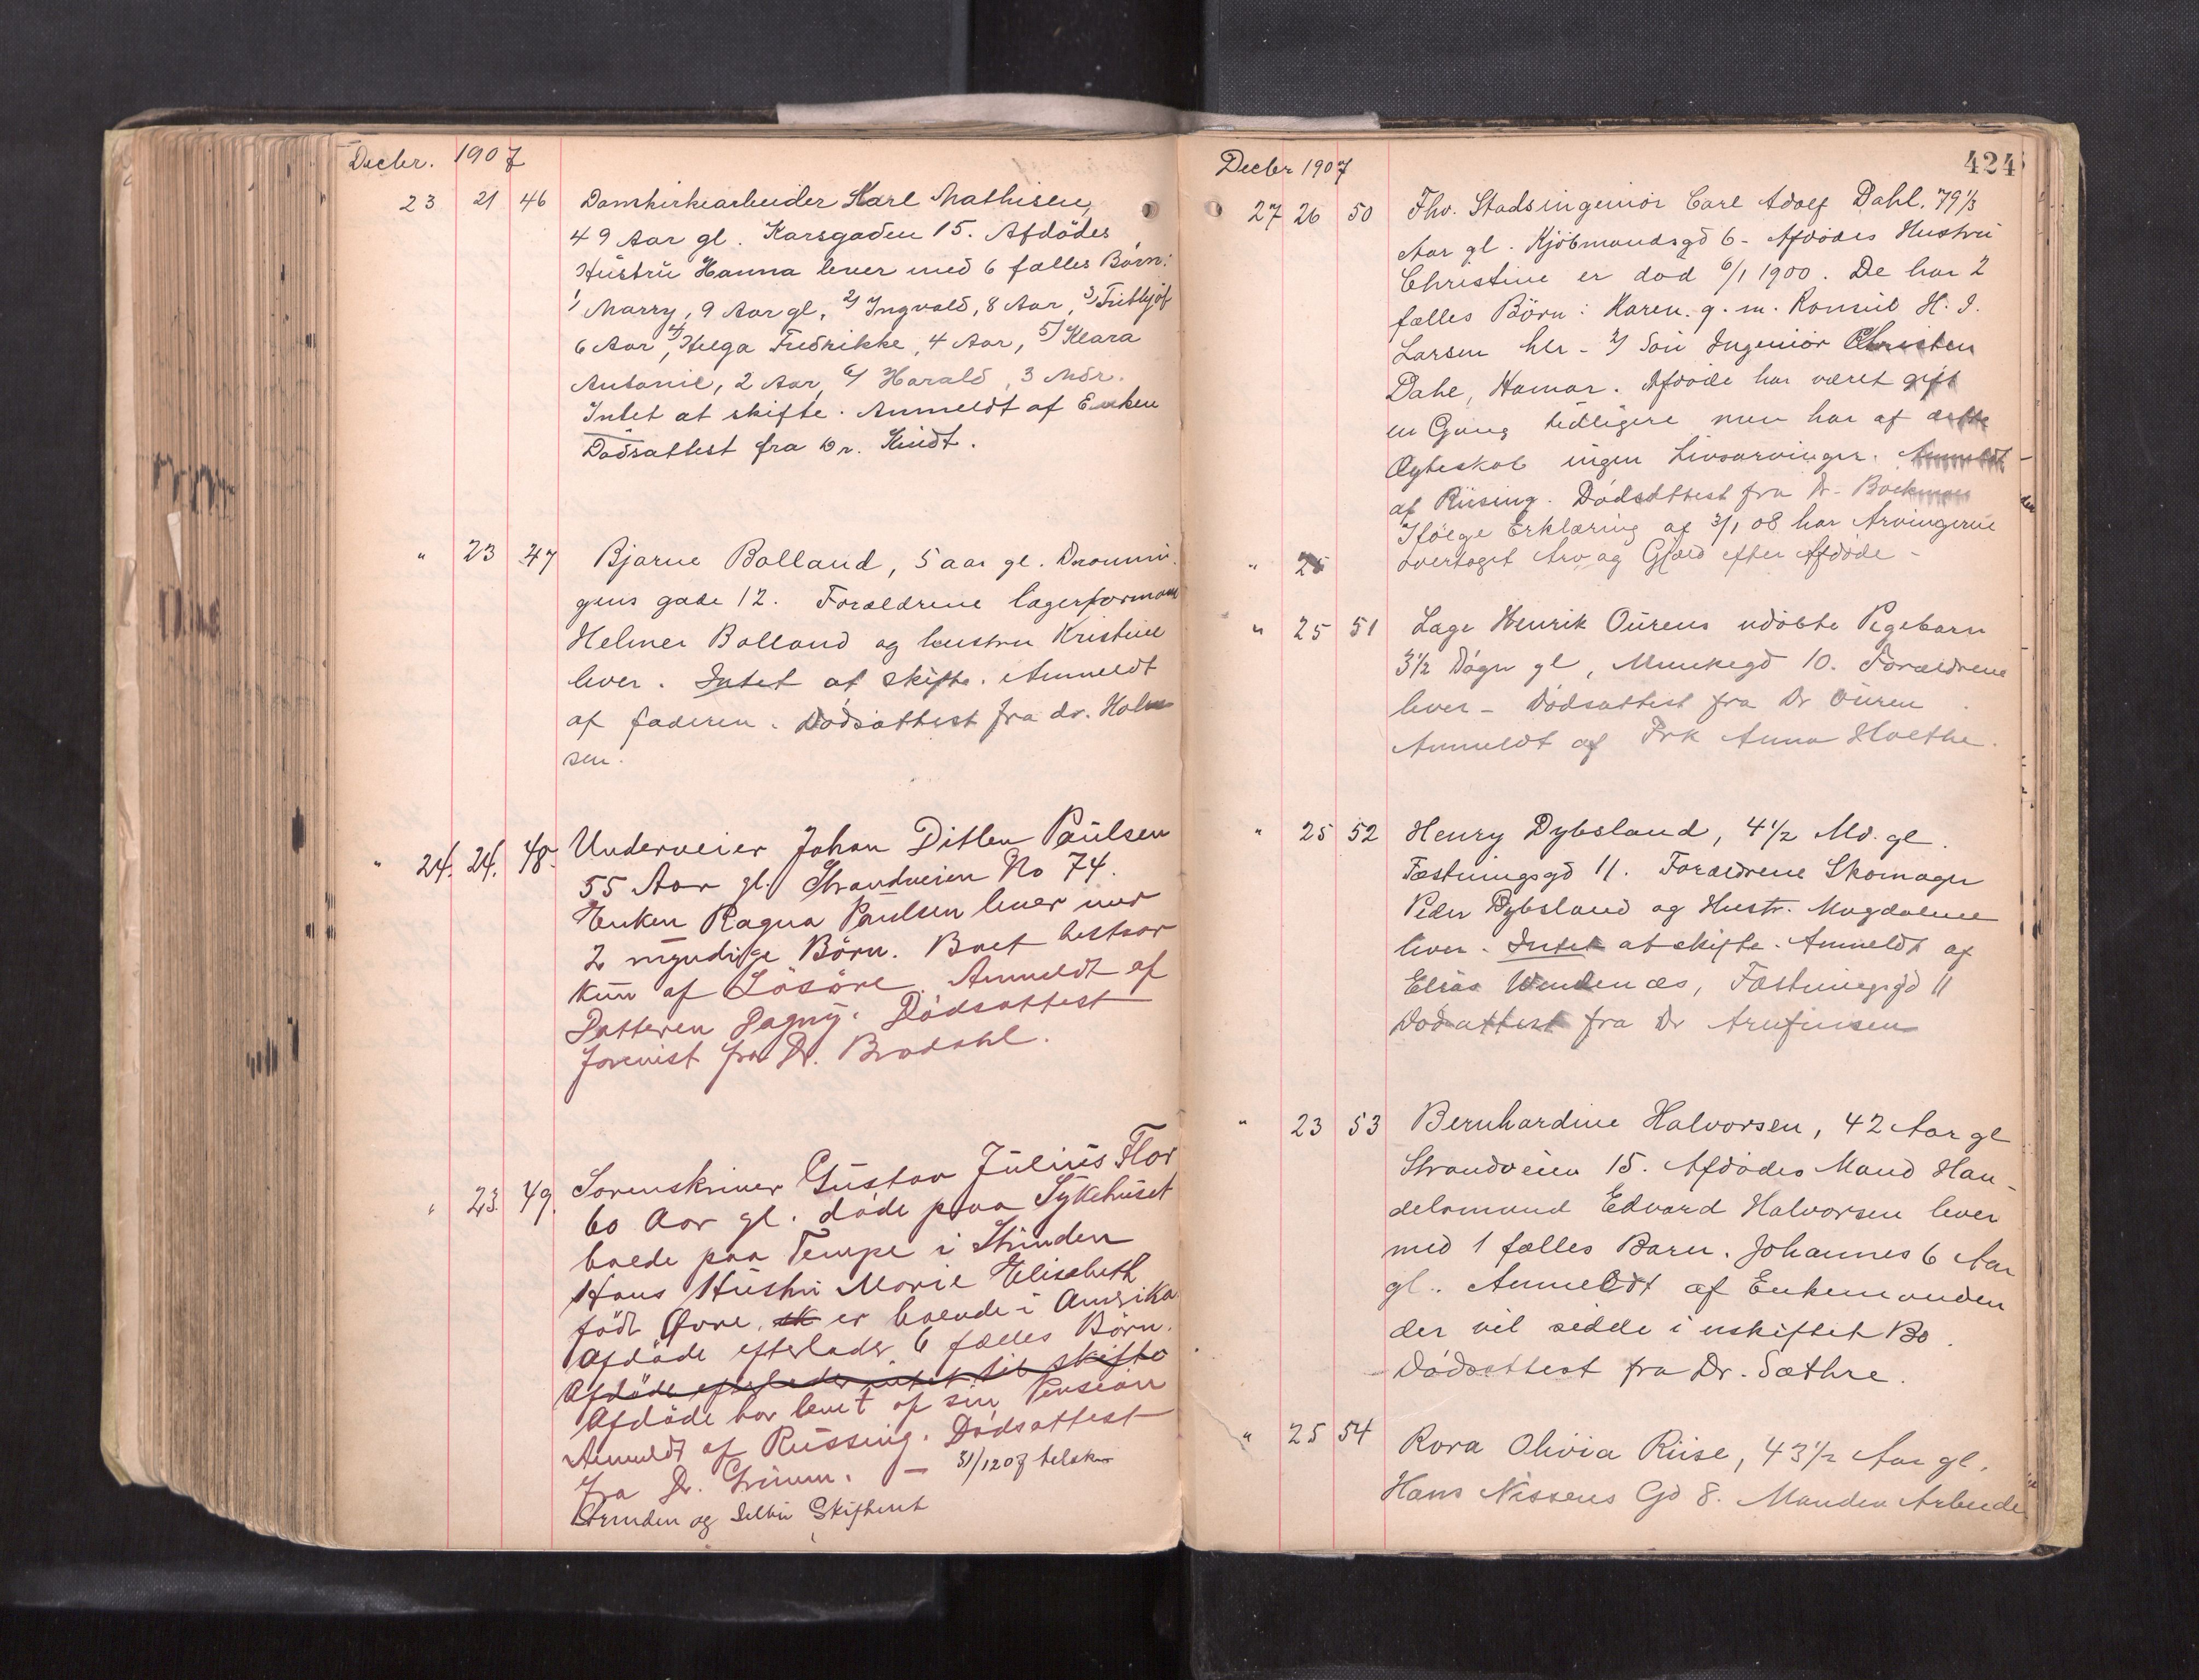 Decbr. 1907
23 21 46 Domkirkearbeider Karl Mathisen,
49 Aar gl. Korsgaden 15. Afdödes
Hustru Hanna lever med 6 fælles Börn:
1 Marry, 9 Aar gl, 2/ Ingvald, 8 Aar, 3/ Frithjof
6 Aar, 4/ Helga Fredrikke, 4 Aar, 5/ Klara
Antonie, 2 Aar, 6/ Harald, 3 Mdr.
Intet at skifte. Anmeldt af Enken
Dødsattest fra Dr. Kindt.
" 23 47 Bjarne Bolland, 5 aar gl. Dronnin
gens gade 12. Forældrene lagerformand
Helmer Bolland og hustru Kristine
lever. Intet at skifte. Anmeldt
af faderen. Dødsattest fra dr. Holm
sen.
" 24. 24. 48. Underveier Johan Ditlev Paulsen
55 Aar gl. Strandveien No 74.
Enken Ragna Paulsen lever med
2 myndige Börn. Boet bestaar
kun af Lösöre. Anmeldt af
Datteren Dagny. Dödsattest
forevist fra Dr. Brodahl.
" 23. 49. Sorenskriver Gustav Julius Flor
60 Aar gl. döde paa Sykehuset
boede paa Tempe i Strinden
Hans Hustru Marie Elisabeth
född Øvre, er boende i Amerika
Afdöde efterlader 6 fælles Börn.
Afdöde efterlader intet til skifte
Afdöde har levet af sin Pension
Anmeldt af Riissing. Dödsattest
fra Dr. Grimm. — 31/12 07 telef
Strinden og Selbu Skifteret
Decbr 1907
424
27 26 50 Fhv. Stadsingeniör Carl Adolf Dahl, 79 1/3
Aar gl. Kjöbmandsgd 6 - Afdödes Hustru
Christine er död 6/1 1900. De har 2
fælles Börn: Karen. g. m. Konsul H. J.
Larsen her - 2/ Sön Ingeniör Christen
Dahl, Hamar. Afdöde har været gift
en Gang tidligere men har af dette
Ægteskab ingen Livsarvinger. Anmeldt
af Riising. Dödsattest fra Dr. Bockman
Ifölge Erklæring af 3/1 08 har Arvingerne
" 25 overtaget Arv og Gjæld efter Afdöde -
" 25 51 Læge Henrik Ourens udöbte Pigebarn
3 1/2 Dögn gl, Munkegd 10. Forældrene
lever - Dödsattest fra Dr Ouren
Anmeldt af Frk Anna Holthe.
" 25 52 Henry Dybsland, 4 1/2 Md. gl.
Fæstningsgd 11. Forældrene Skomager
Peder Dybsland og Hustr. Magdalene
lever. Intet at skifte. Anmeldt af
Elias, Fæstningsgd 11
Dödsattest fra Dr Arnfinsen
" 23 53 Bernhardine Halvorsen, 42 Aar gl
Strandveien 15. Afdödes Mand Han-
delsmand Edvard Halvorsen lever
med 1 fælles Barn. Johannes 6 Aar
gl. Anmeldt af Enkemanden
der vil sidde i uskiftet Bo.
Dödsattest fra Dr. Sæthre.
" 25 54 Rora Olivia Riise, 43 1/2 Aar gl.
Hans Nissens Gd 8. Manden Arbeide